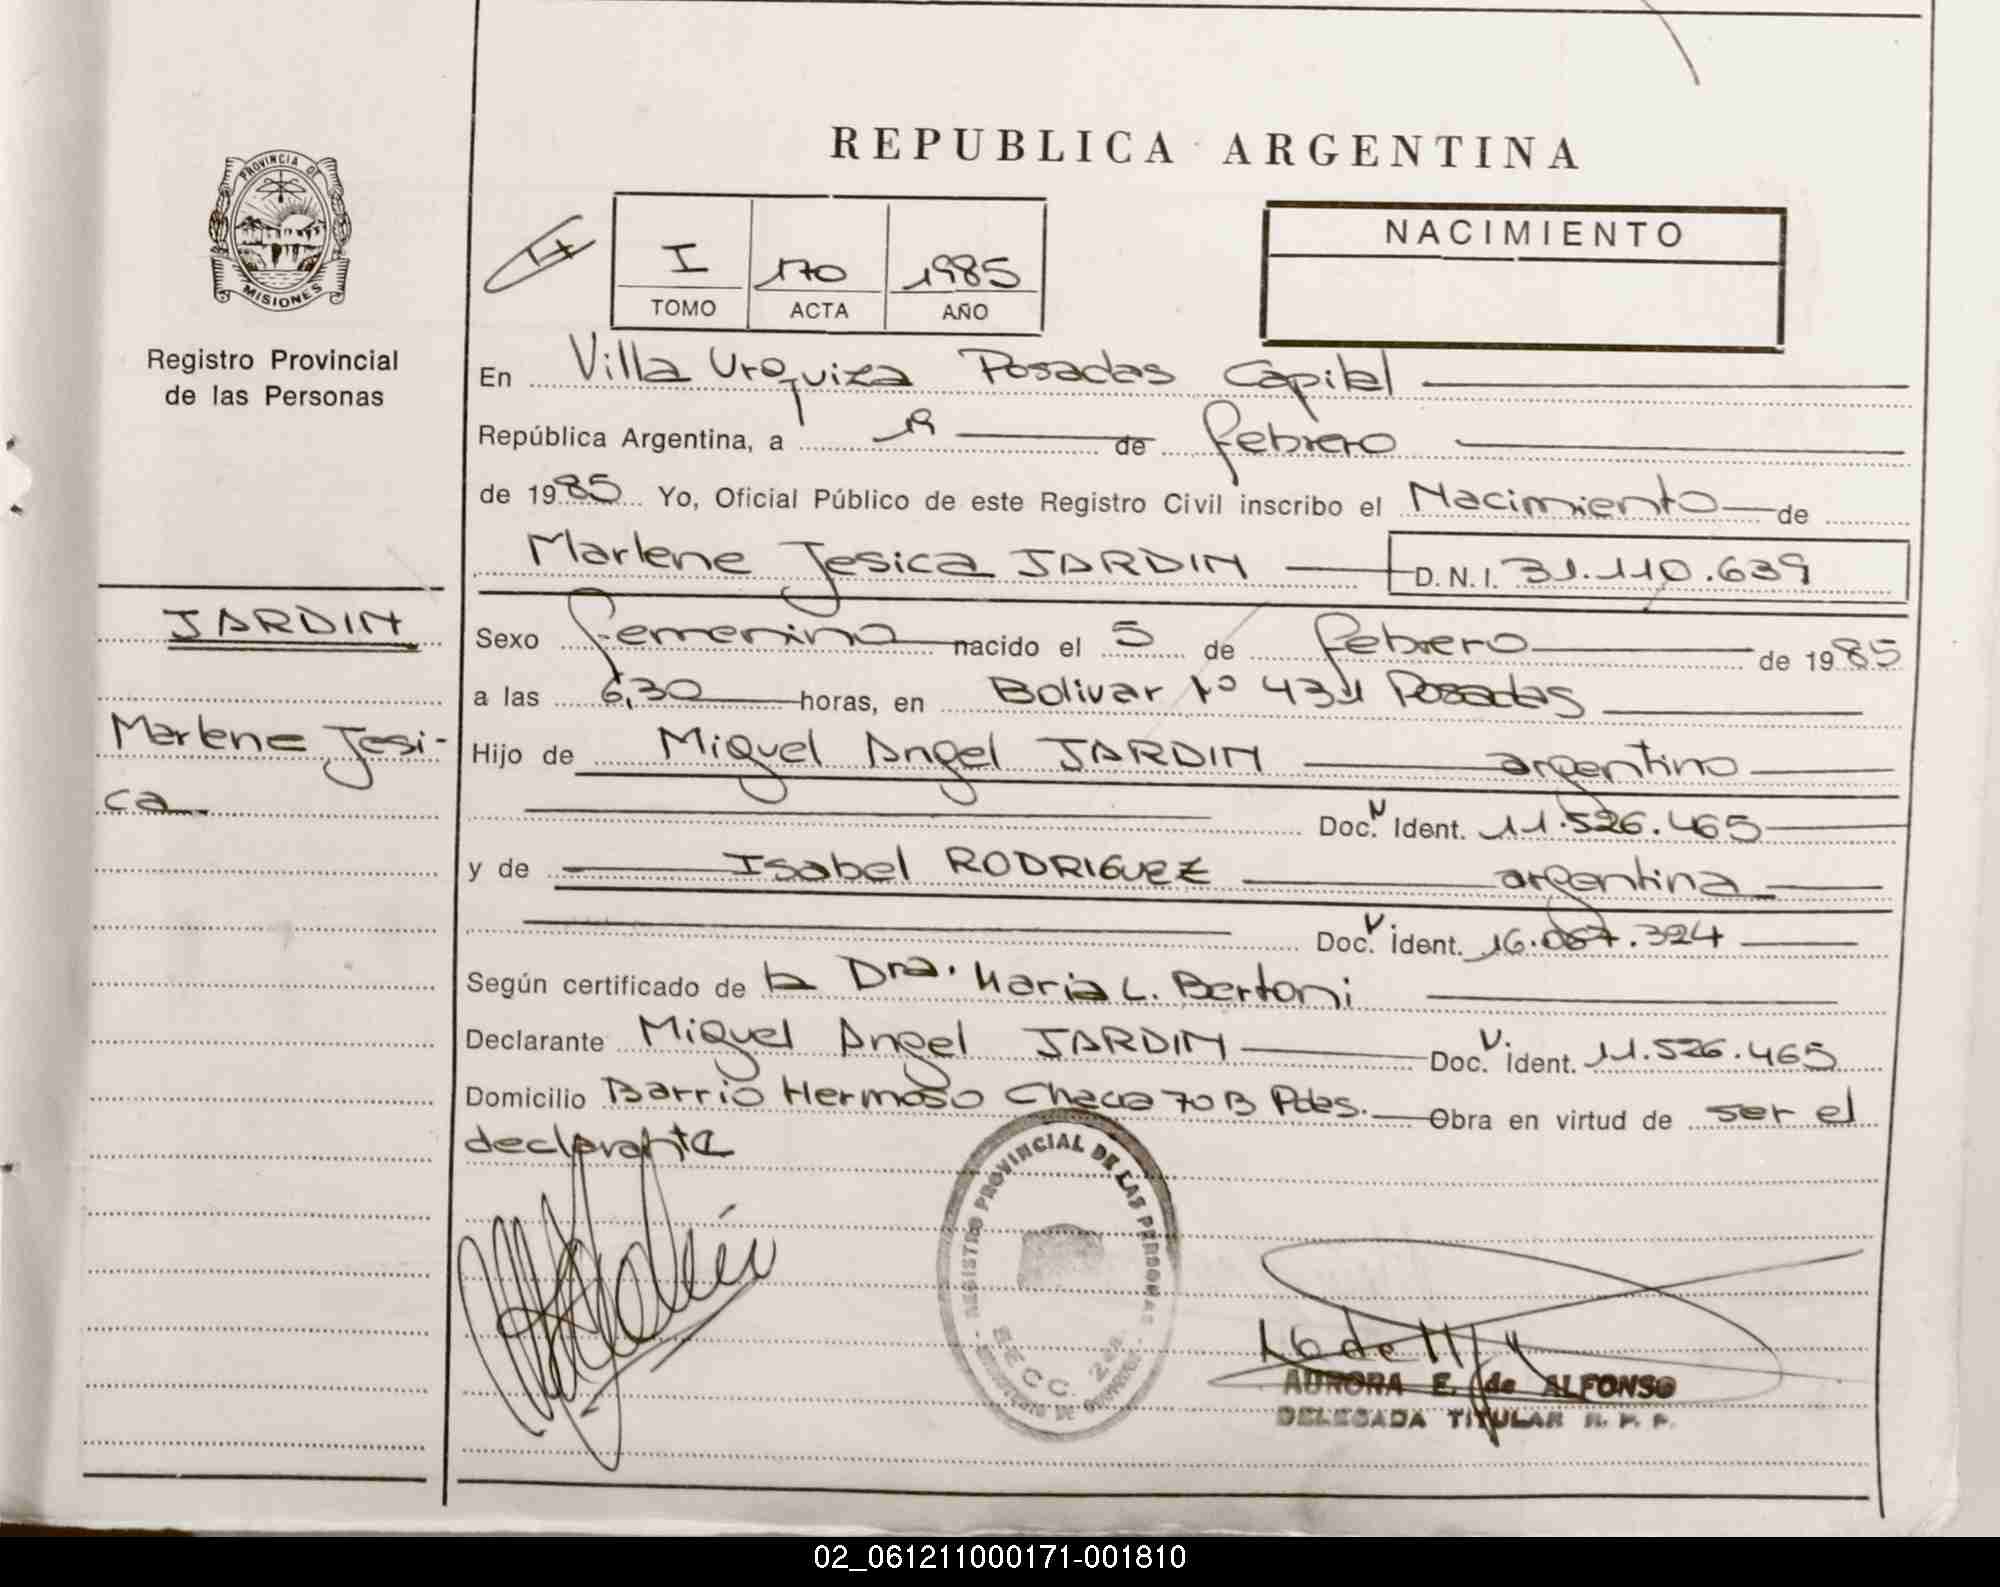 REPUBLICA ARGENTINA
PROVINCIA DE
MISIONES
Registro Provincial
de las Personas
I 170 1985
TOMO ACTA AÑO
NACIMIENTO
En Villa Urquiza Posadas Capital
República Argentina, a de febrero
de 1985 Yo, Oficial Público de este Registro Civil inscribo el Nacimiento de
Marlene Jesica JARDIN D.N.I. 31.110.639
JARDIN
Marlene Jesi-
ca
Sexo femenino nacido el 5 de febrero de 1985
a las 6,30 horas, en Bolivar Nº 431 Posadas
Hijo de Miguel Angel JARDIN argentino
Doc. Ident. 11.526.465
y de Isabel RODRIGUEZ argentina
Doc. Ident. 16.067.324
Según certificado de la Dra. Maria L. Bertoni
Declarante Miguel Angel JARDIN Doc. Ident. 11.526.465
Domicilio Barrio Hermoso Chacra 70 B Pdas. Obra en virtud de ser el
declarante
REGISTRO PROVINCIAL DE LAS PERSONAS
AURORA E. de ALFONSO
DELEGADA TITULAR R. P. P.
02_061211000171-001810